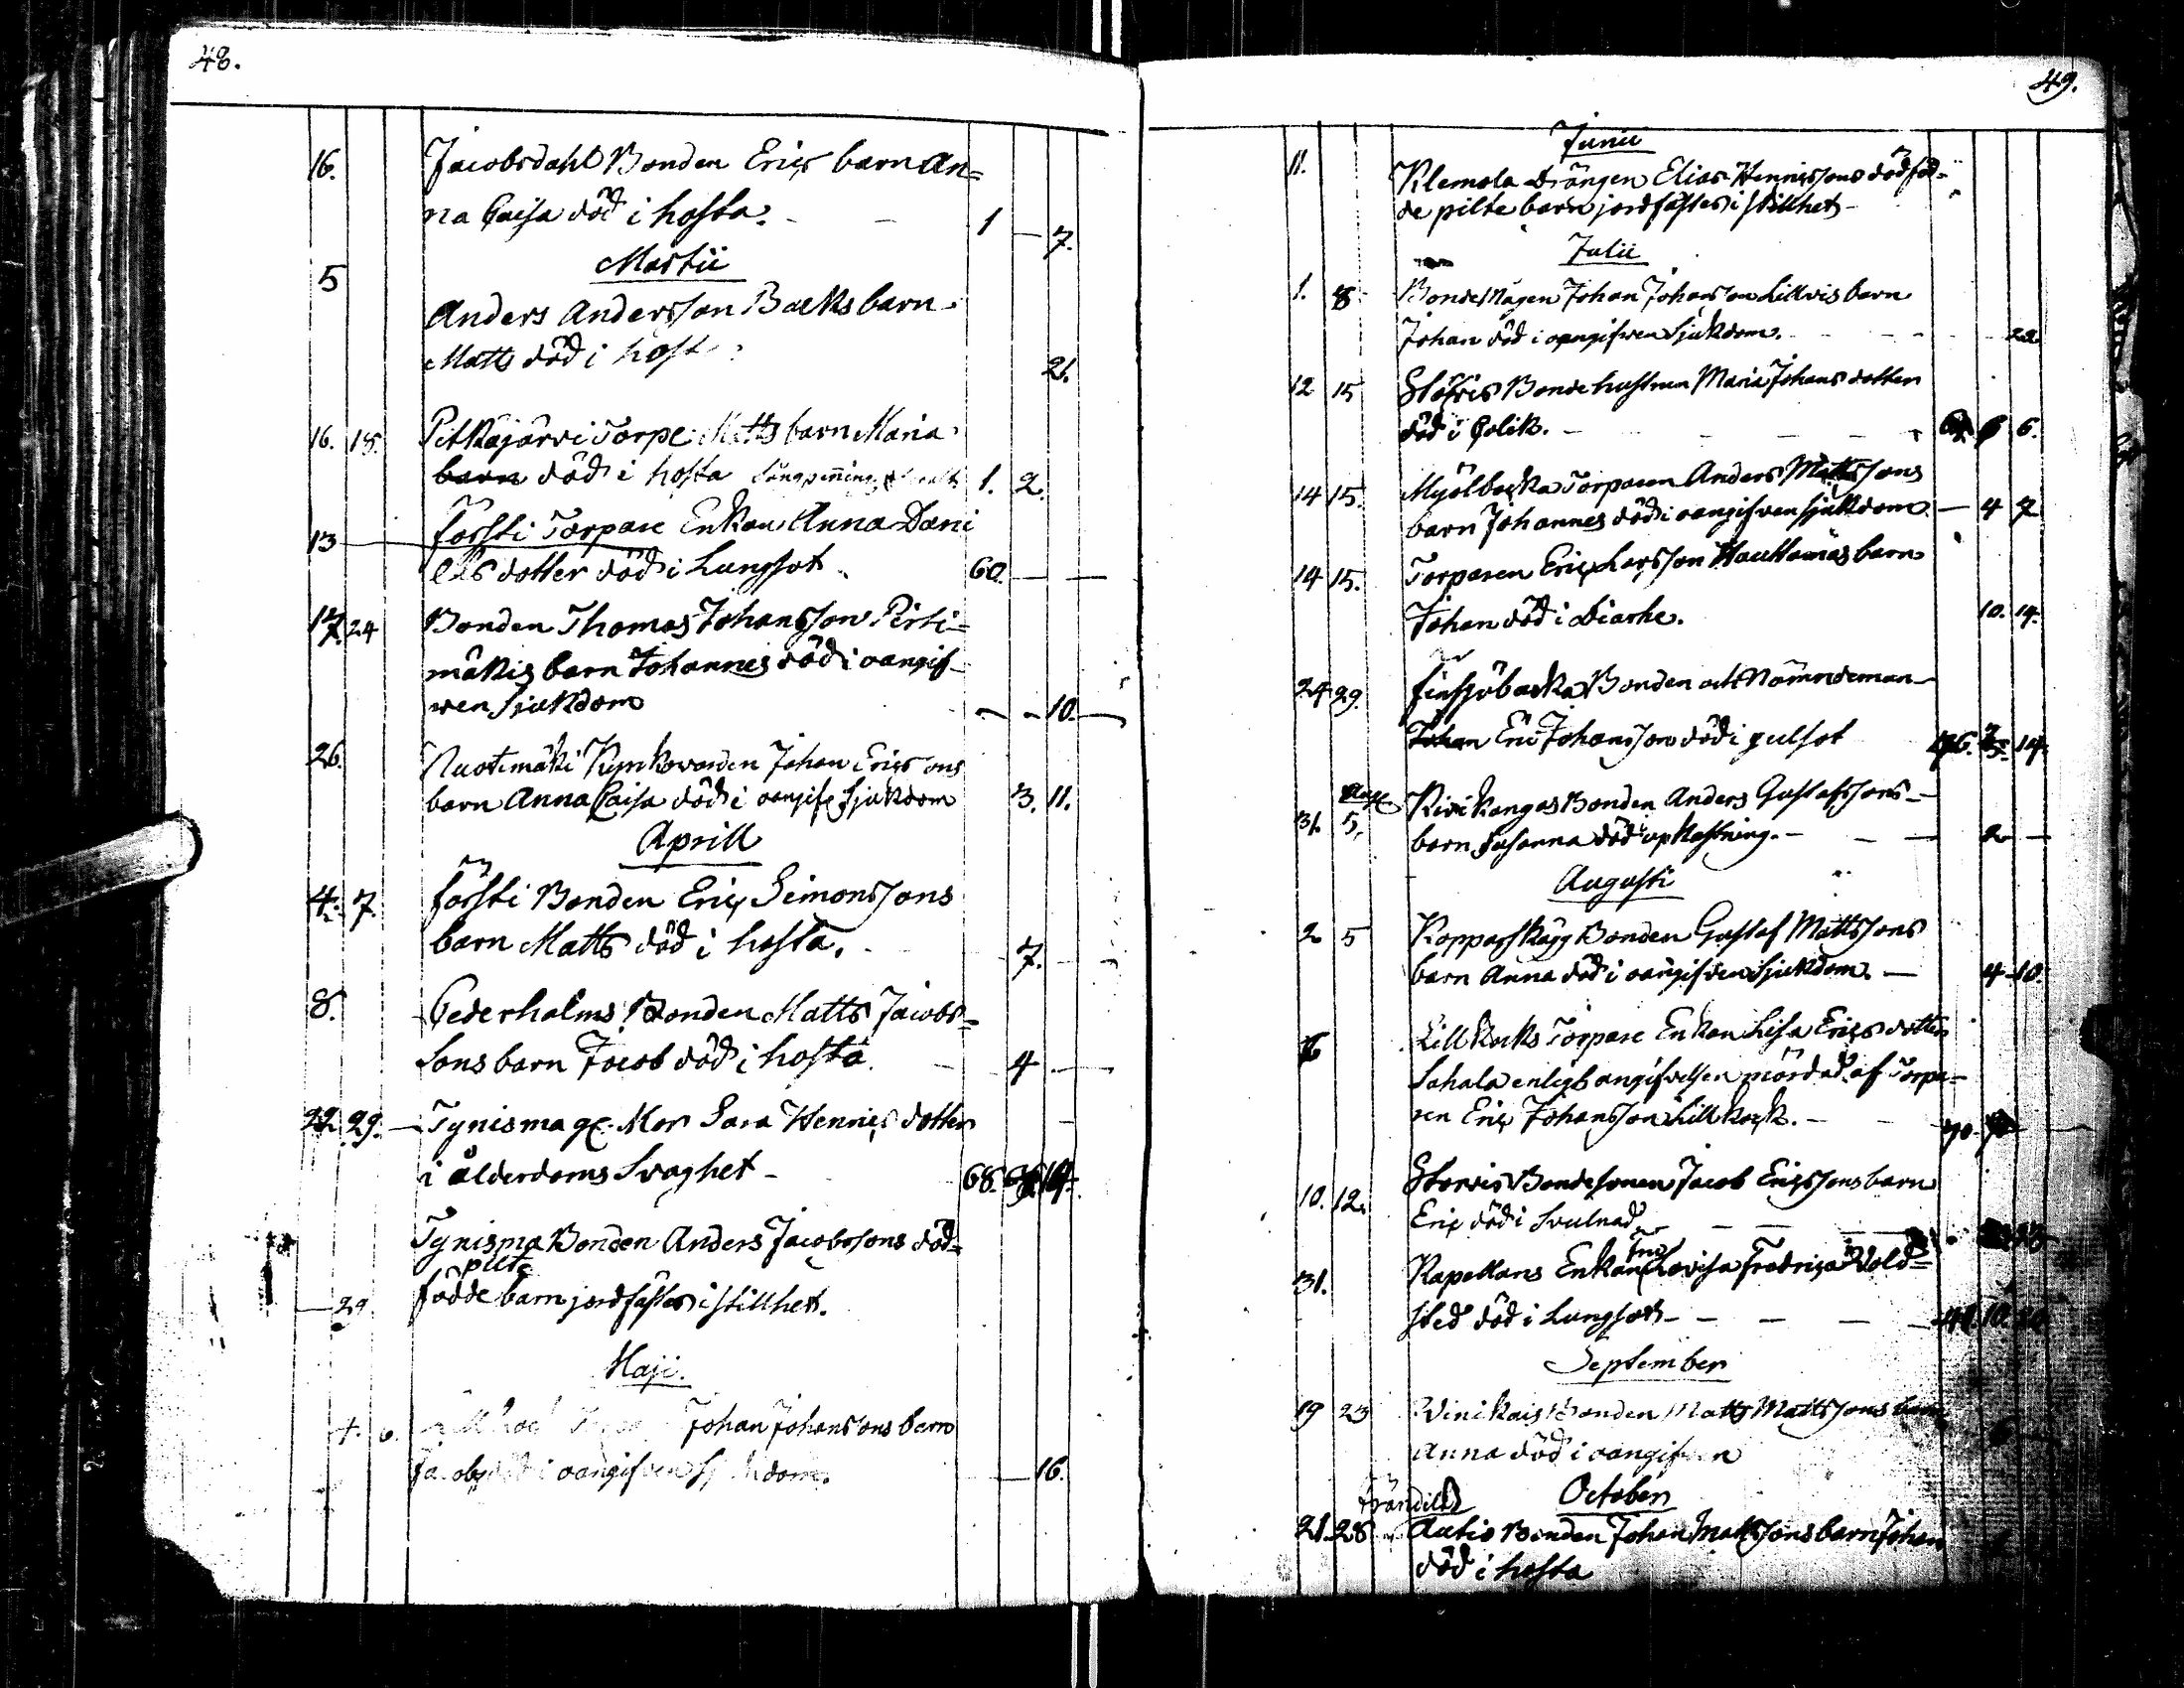 48.
16. Jacobsdahl Bonden Erics barn An=
na Caisa död i hosta. - - 1 - 7.
Martii
5
Anders Andersson Backs barn
Matts död i host 21.
16. 18. Pitkäjärvi Torpe Matts barn Maria
barn död i hosta 1. 2.
13 Forsti Torpare Enkan Anna Dani
els dotter död i Lungsot 60. - -
17. 24 Bonden Thomas Johansson Pirti=
mäkis barn Johannes död i oangif-
wen Sjukdom - - 10.
26. Nuotimäki Johan Ericsons
barn Anna Caisa död i oangifn Sjukdom 3. 11.
Aprill
4. 7. Forsti Bonden Eric Simonssons
barn Matts död i hosta. 7. -
8. Cederholms Bonden Matts Jacobs=
sons barn Jacob död i hosta. - 4 -
22. 29. Tynisma gl. Mor Sara Hennics dotter
i ålderdoms Svaghet - 68.
Tynisma Bonden Anders Jacobssons död=
pilte
- 29. födde barn jordfästes i stillhet.
Maji.
6. Johan Johanssons barn
Jacob död i oangifven Sjukdom. - 16.
49.
Junii
11. Klemola Drängen Elias Hennissons dödföd=
de pilte barn jordfästes i stillhet -
Julii
1. 8 Bonde Mågen Johan Johansson Lillvis barn
Johan död i oangifwen Sjukdom. - - - 22.
12 15 Storvis Bonde hustrun Maria Johans dotter
död i Colik. - - - - 6.
14 15. Mjölbacka Torparen Anders Mattssons
barn Johannes död i oangifven sjukdom - 4 7
14 15. Torparen Eric Larsson Hauttamäs barn
Johan död i Diarhe. 10. 14.
24 29. Finsjöbacka Bonden och Nämndeman
Johan Eric Johansson död i gulsot 14.
Aug.
31. 5. Kivikangas Bonden Anders Gustafssons
barn Susanna död i upkastning. - - - 2 -
Augusti
2 5 Kopparskägg Bonden Gustaf Mattssons
barn Anna död i oangifven Sjukdom. - 4 10.
6 Lillkocks Torpare Enkan Lisa Erics dotter
Sahala enligt angifvelsen mördad af Torpa=
ren Eric Johansson Lillkock. - - 70.
10. 12. Storvis Bondesonen Jacob Ericssons barn
Eric död i Svulnad - - -
31. Kapellans Enkan Fru Lovisa Fredrica Wold=
sted död i Lungsot - - - - 10.
September
19 23 Winikais Bonden Matts Mattssons barn
Anna död i oangifven
October
21. 28 Autio Bonden Johan Mattssons barn Johan
död i hosta